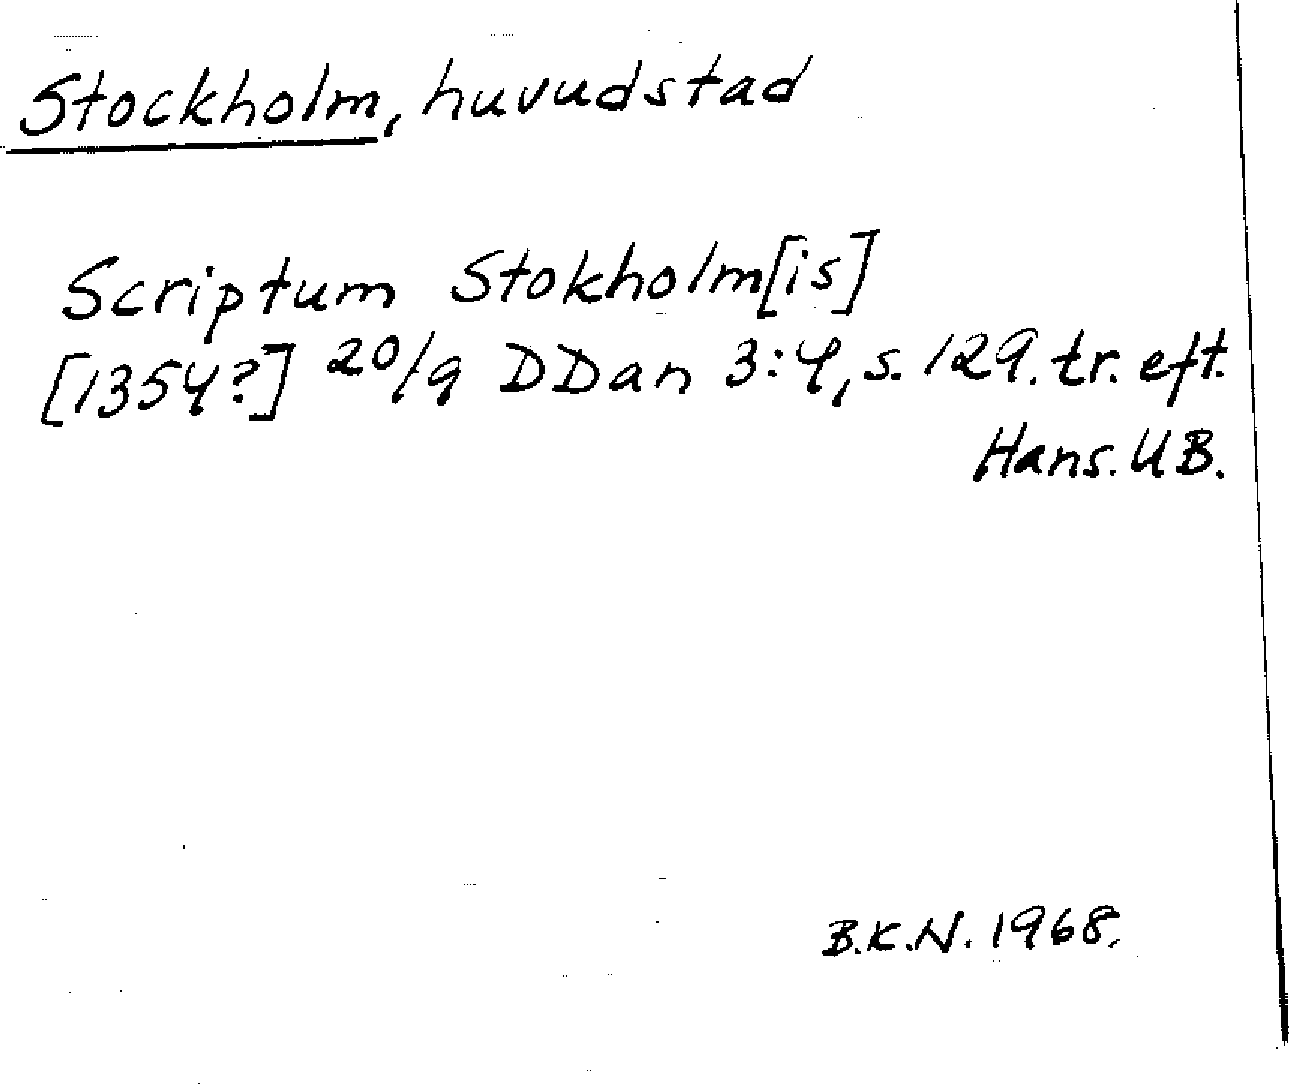 Stockholm, huvudstad
Scriptum Stokholm[is]
[1354?] 20/9 DDan 3:4, s. 129. tr. eft.
Hans. UB.
B.K.N. 1968.